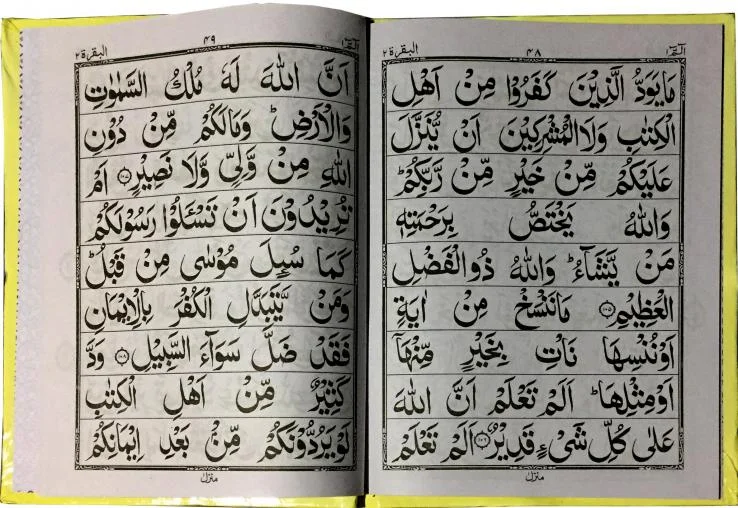 الٓمّٓ ١
٤٨
البقرة ٢
مَا يَوَدُّ الَّذِيْنَ كَفَرُوْا مِنْ اَهْلِ
الْكِتٰبِ وَلَا الْمُشْرِكِيْنَ اَنْ يُّنَزَّلَ
عَلَيْكُمْ مِّنْ خَيْرٍ مِّنْ رَّبِّكُمْ ؕ
وَاللّٰهُ يَخْتَصُّ بِرَحْمَتِهٖ
مَنْ يَّشَآءُ ؕ وَاللّٰهُ ذُو الْفَضْلِ
الْعَظِيْمِ ﴿١٠٥﴾ مَا نَنْسَخْ مِنْ اٰيَةٍ
اَوْ نُنْسِهَا نَاْتِ بِخَيْرٍ مِّنْهَاۤ
اَوْ مِثْلِهَا ؕ اَلَمْ تَعْلَمْ اَنَّ اللّٰهَ
عَلٰى كُلِّ شَىْءٍ قَدِيْرٌ ﴿١٠٦﴾ اَلَمْ تَعْلَمْ
منزل
الٓمّٓ ١
٤٩
البقرة ٢
اَنَّ اللّٰهَ لَهٗ مُلْكُ السَّمٰوٰتِ
وَالْاَرْضِ ؕ وَمَا لَكُمْ مِّنْ دُوْنِ
اللّٰهِ مِنْ وَّلِيٍّ وَّلَا نَصِيْرٍ ﴿١٠٧﴾ اَمْ
تُرِيْدُوْنَ اَنْ تَسْـَٔلُوْا رَسُوْلَكُمْ
كَمَا سُىِٕلَ مُوْسٰى مِنْ قَبْلُ ؕ
وَمَنْ يَّتَبَدَّلِ الْكُفْرَ بِالْاِيْمَانِ
فَقَدْ ضَلَّ سَوَآءَ السَّبِيْلِ ﴿١٠٨﴾ وَدَّ
كَثِيْرٌ مِّنْ اَهْلِ الْكِتٰبِ
لَوْ يَرُدُّوْنَكُمْ مِّنْ بَعْدِ اِيْمَانِكُمْ
منزل